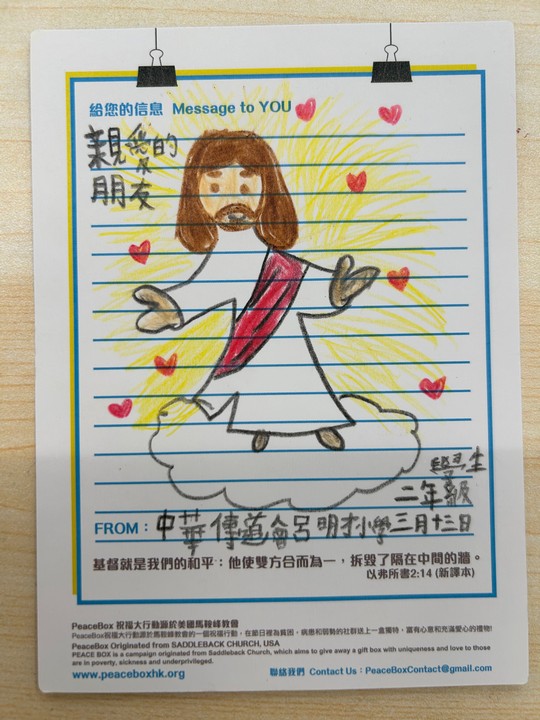 給您的信息 Message to YOU
親愛的
朋友
學生
二年級
FROM：中華傳道會呂明才小學三月十三日
基督就是我們的和平：他使雙方合而為一，拆毀了隔在中間的牆。
以弗所書2:14 (新譯本)
PeaceBox 祝福大行動源於美國馬鞍峰教會
PeaceBox祝福大行動源於馬鞍峰教會的一個祝福行動，在節日裡為貧困、病患和弱勢的社群送上一盒獨特，富有心意和充滿愛心的禮物!
PeaceBox Originated from SADDLEBACK CHURCH, USA
PEACE BOX is a campaign originated from Saddleback Church, which aims to give away a gift box with uniqueness and love to those
are in poverty, sickness and underprivileged.
www.peaceboxhk.org 聯絡我們 Contact Us：PeaceBoxContact@gmail.com